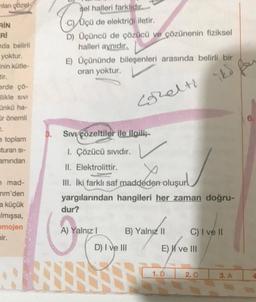 nılan çözel-
sel halleri farklıdır.
RİN
C) Üçü de elektriği iletir.
Rİ
D) Üçüncü de çözücü ve çözünenin fiziksel
nda belirli
halleri aynıdır.
yoktur.
E) Üçününde bileşenleri arasında belirli bir
inin kütle-
oran yoktur.
tir.
erde çö-
llikle sıvı
çözelti
ünkü ha-
ür önemli
6.
3. Sıvı çözeltiler ile ilgili;
e toplam
I. Çözücü sıvıdır.
turan sı-
amından
II. Elektrolittir.
e mad-
III. İki farklı saf maddeden oluşur.
nm'den
yargılarından hangileri her zaman doğru-
a küçük
dur?
ılmışsa,
omojen
A) Yalnız I B) Yalnız II C) I ve II
nir.
D) I ve III E) II ve III
1. D 2. C 3. A